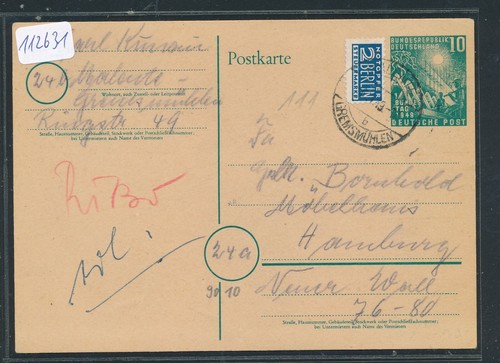 112631
Postkarte
Karl
24b Malente-
Gremsmühlen
Wohnort, auch Zustell- oder Leitpostamt
Ringstr 49
Straße, Hausnummer, Gebäudeteil, Stockwerk oder Postschließfachnummer;
bei Untermietern auch Name des Vermieters
NOTOPFER
2 BERLIN
STEUERMARKE
BUNDESREPUBLIK 10
DEUTSCHLAND
BUNDES
TAG
1949
DEUTSCHE POST
GREMSMÜHLEN
b
111
Bornhold
Möbelhaus
Hamburg
24a
Neuer Wall
76-80
Straße, Hausnummer, Gebäudeteil, Stockwerk oder Postschließfachnummer;
bei Untermietern auch Name des Vermieters